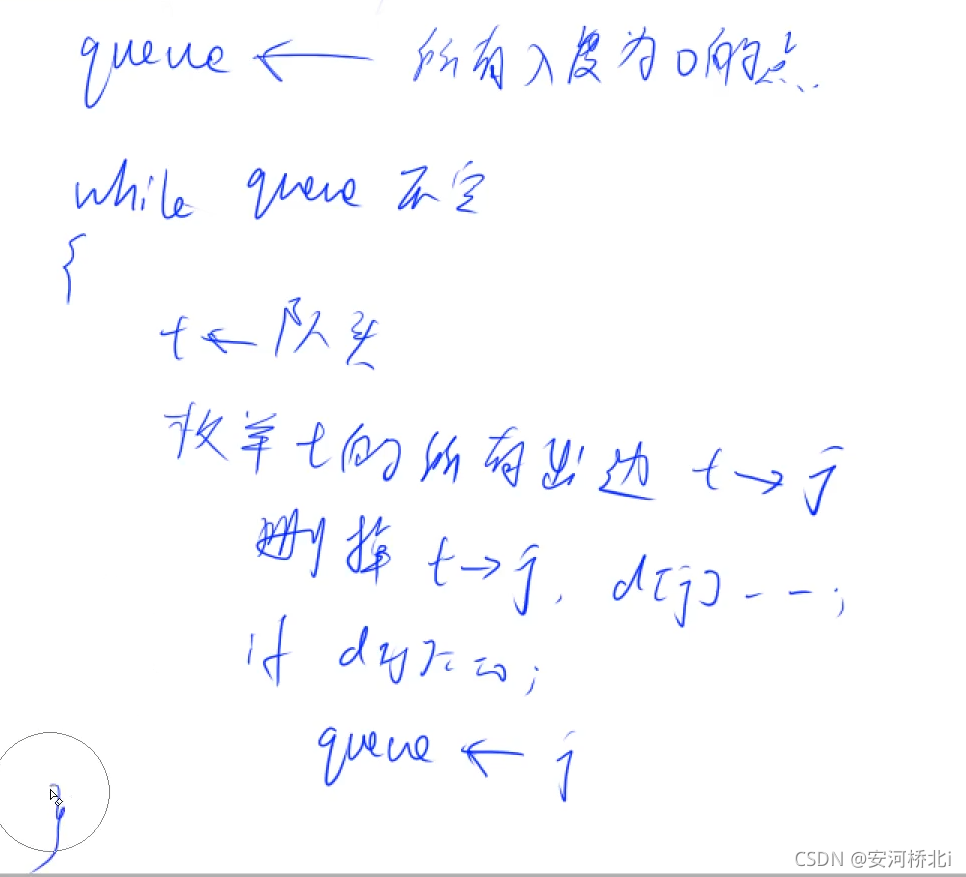 queue ← 所有入度为0的点.
while queue 不空
{
t ← 队头
枚举 t 的所有出边 t → j
删掉 t → j, d[j] --;
if d[j] == 0;
queue ← j
}
CSDN @安河桥北i